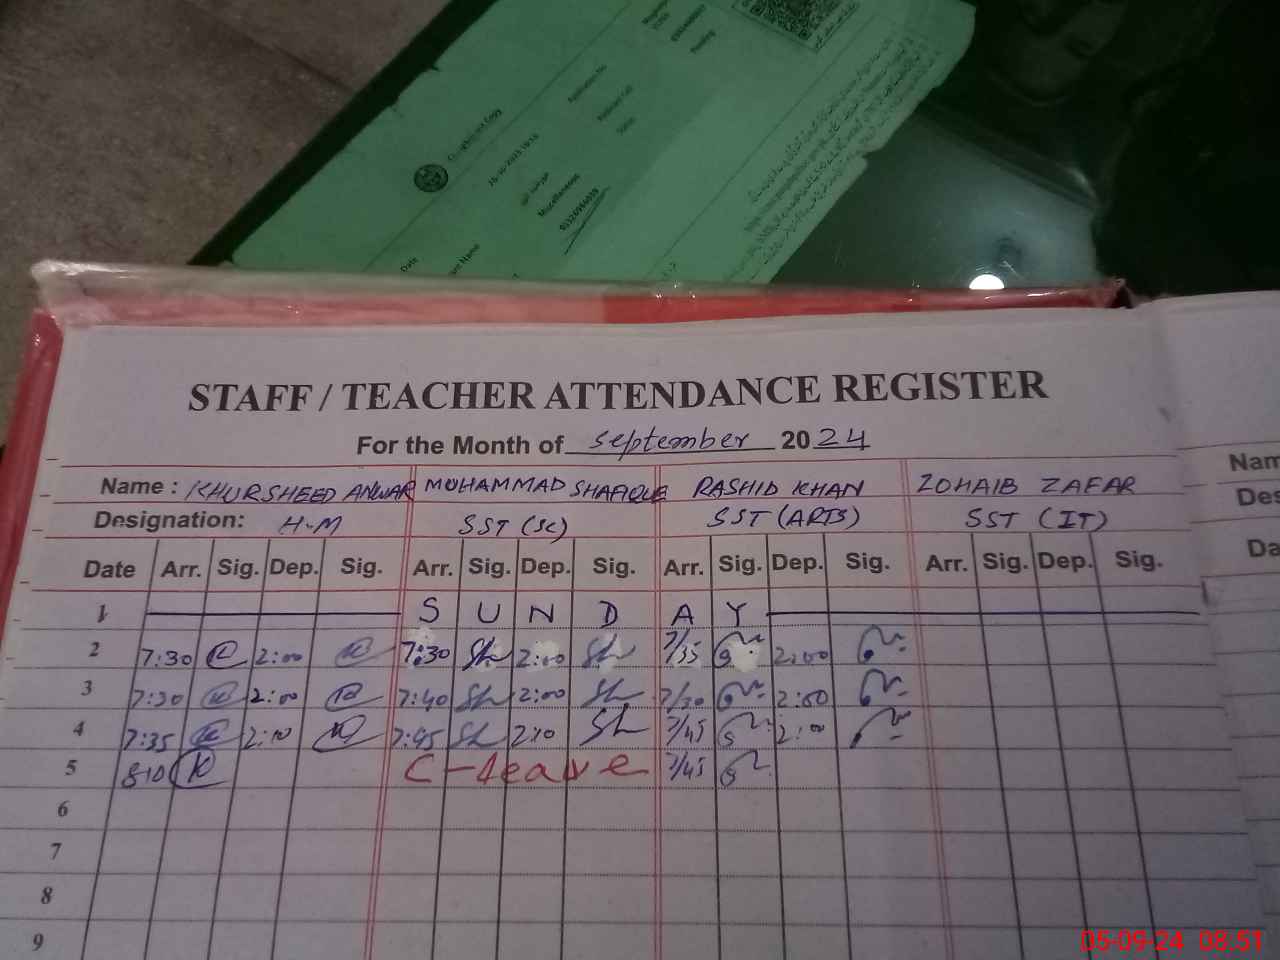 Complainant Copy
Date
20-10-2023 10:13
Application No
Applicant Cell
Status
Pending
Miscellaneous
03326966939
STAFF / TEACHER ATTENDANCE REGISTER
For the Month of September 2024
Name : KHURSHEED ANWAR MUHAMMAD SHAFIQUE RASHID KHAN ZOHAIB ZAFAR
Designation: H.M SST (SC) SST (ARTS) SST (IT)
Date Arr. Sig. Dep. Sig. Arr. Sig. Dep. Sig. Arr. Sig. Dep. Sig. Arr. Sig. Dep. Sig.
1 S U N D A Y
2 7:30 2:00 7:30 2:00 7/35 2:00
3 7:30 2:00 7:40 2:00 7/30 2:00
4 7:35 2:10 7:45 2:10 7/45 2:00
5 8:10 C-leave 7/45
6
7
8
9
Nam
Des
Da
05-09-24 08:51